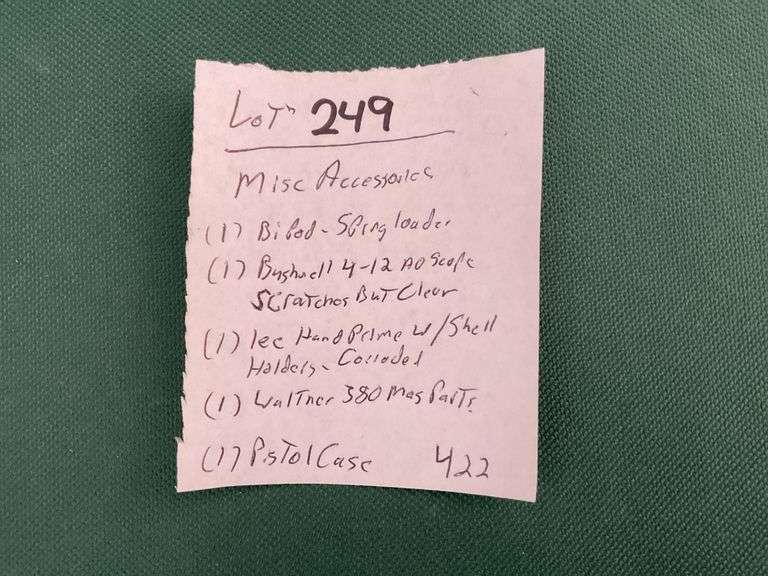 Lot# 249
Misc Accessories
(1) Bipod - Spring loader
(1) Bushnell 4-12 AO Scope
Scratches But Clear
(1) lee Hand Prime w/ Shell
Holders - Corroded
(1) Walther 380 Mag Parts
(1) Pistol Case 422